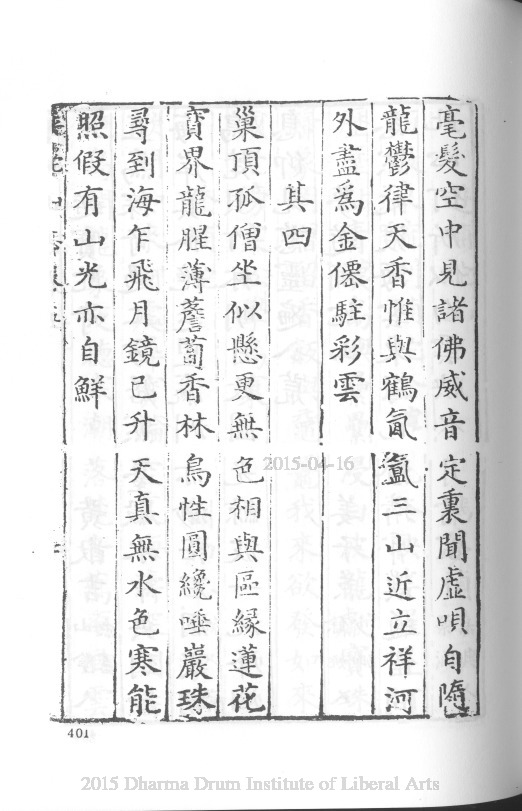 毫髮空中見諸佛威音定裏聞虛唄自隨
龍鬱律天香惟與鶴氤氳三山近立祥河
外盡爲金僊駐彩雲
其四
巢頂孤僧坐似懸更無色相與區緣蓮花
寶界龍腥薄薝蔔香林鳥性圓纔唾巖珠
尋到海乍飛月鏡已升天真無水色寒能
照假有山光亦自鮮
401
2015-04-16
2015 Dharma Drum Institute of Liberal Arts